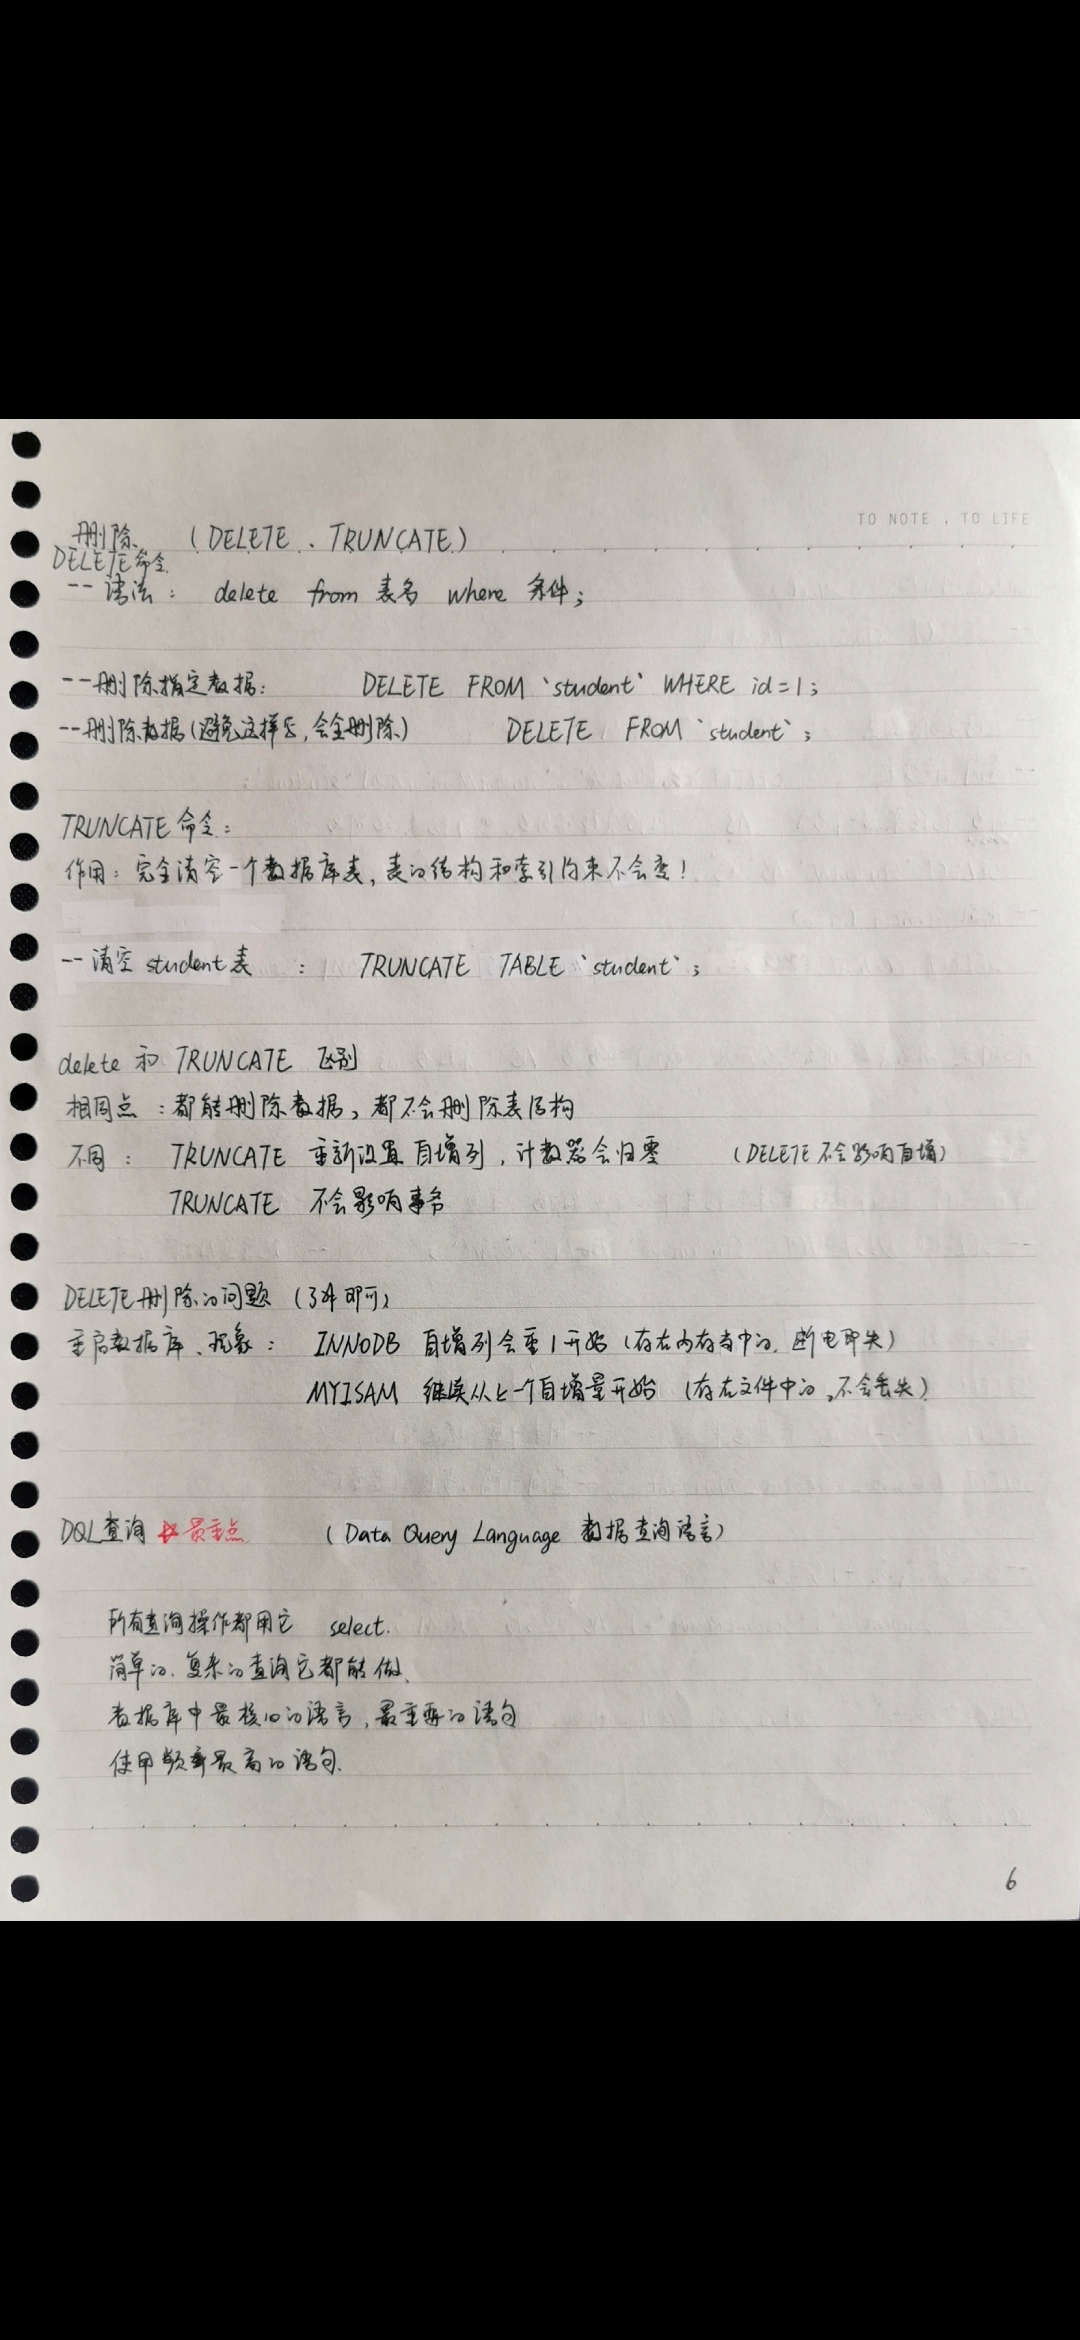 TO NOTE , TO LIFE
删除 (DELETE 、 TRUNCATE)
DELETE命令
-- 语法： delete from 表名 where 条件;
--删除指定数据: DELETE FROM `student` WHERE id=1;
--删除数据(避免这样写,会全删除) DELETE FROM `student`;
TRUNCATE 命令:
作用: 完全清空一个数据库表, 表的结构和索引约束不会变!
-- 清空 student 表 : TRUNCATE TABLE `student`;
delete 和 TRUNCATE 区别
相同点 : 都能删除数据, 都不会删除表结构
不同 : TRUNCATE 重新设置 自增列, 计数器会归零 (DELETE 不会影响自增)
TRUNCATE 不会影响事务
DELETE删除的问题 (了解即可)
重启数据库、现象: INNODB 自增列会重1开始 (存在内存当中的, 断电即失)
MYISAM 继续从上一个自增量开始 (存在文件中的,不会丢失)
DQL查询 最重点 (Data Query Language 数据查询语言)
所有查询操作都用它 select.
简单的, 复杂的查询它都能做、
数据库中最核心的语言, 最重要的语句
使用频率最高的语句.
6